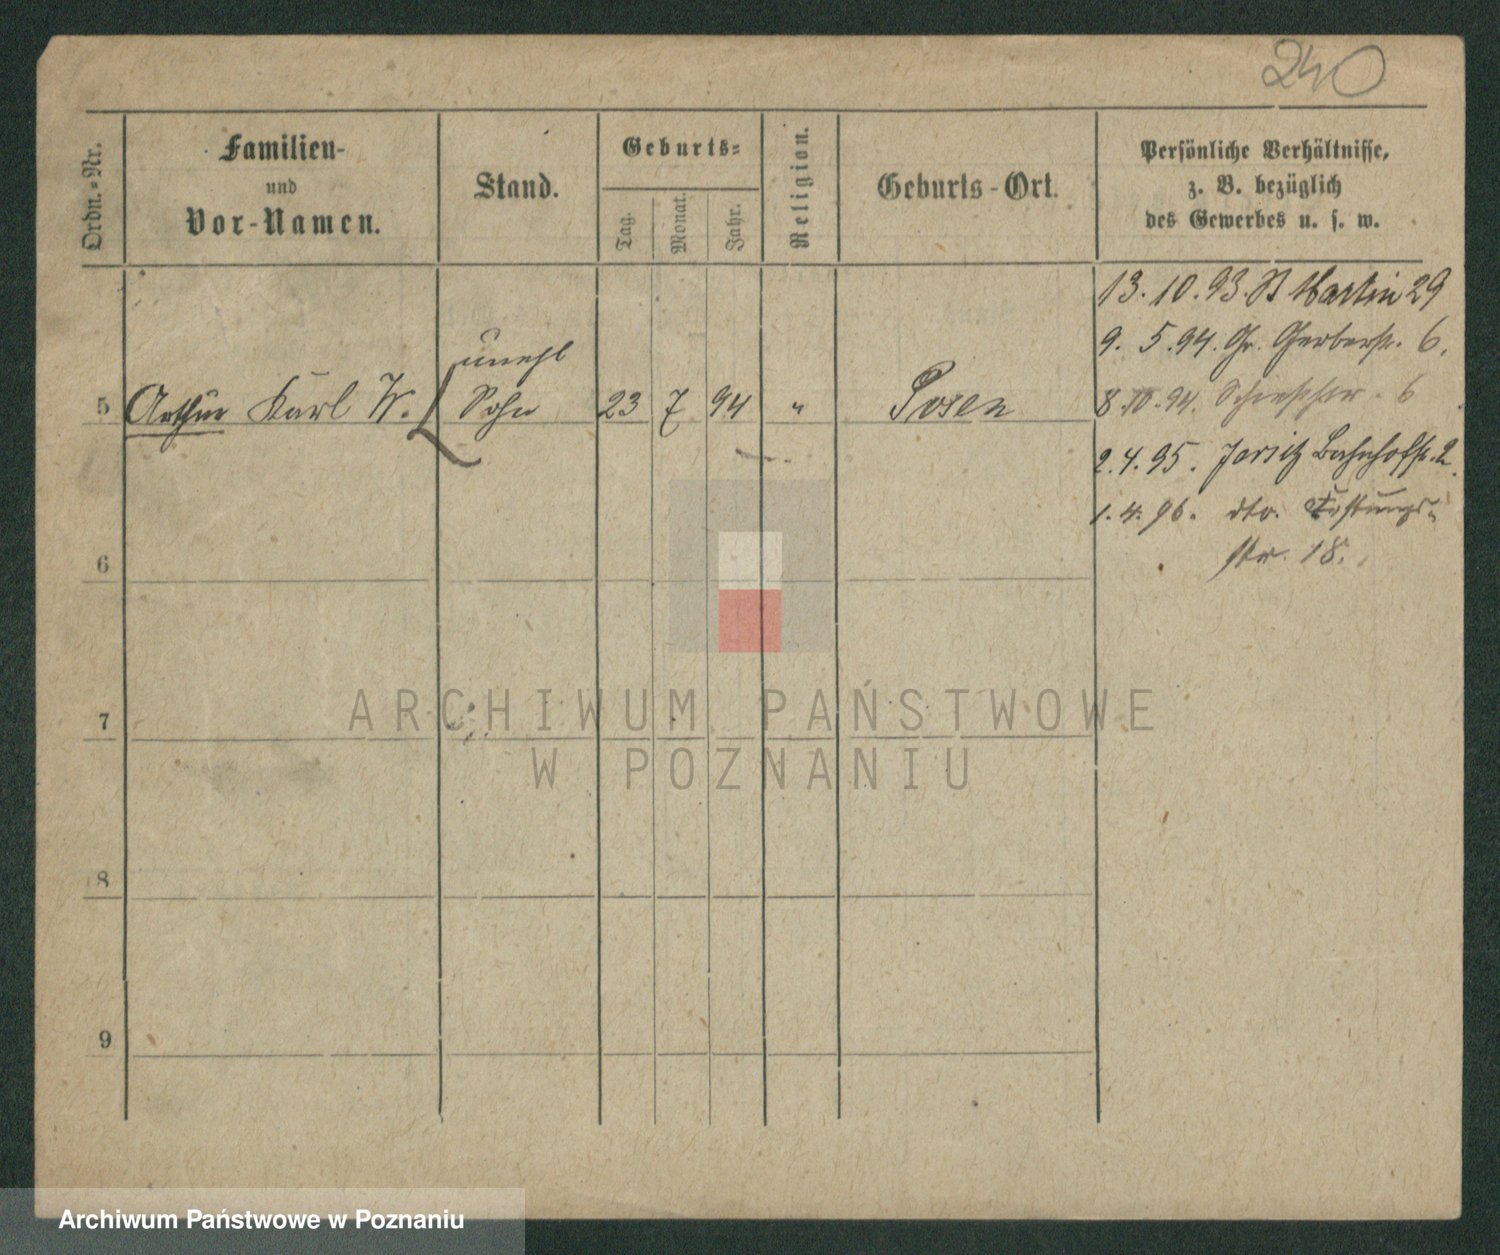 240
Ordn.-Nr.
Familien-
und
Vor-Namen.
Stand.
Geburts-
Tag.
Monat.
Jahr.
Religion.
Geburts-Ort.
Persönliche Verhältnisse,
z. B. bezüglich
des Gewerbes u. s. w.
13. 10. 93. St Martin 29
9. 5. 94. Gr. Gerberstr. 6.
unehl
5 Arthur Karl W. Sohn 23 7 94 " Posen
8. 10. 94. 6
2. 4. 95. Jersitz Bahnhofstr. 2.
1. 4. 96. dto. Festungs-
str. 18.
6
7
8
9
ARCHIWUM PAŃSTWOWE
W POZNANIU
Archiwum Państwowe w Poznaniu